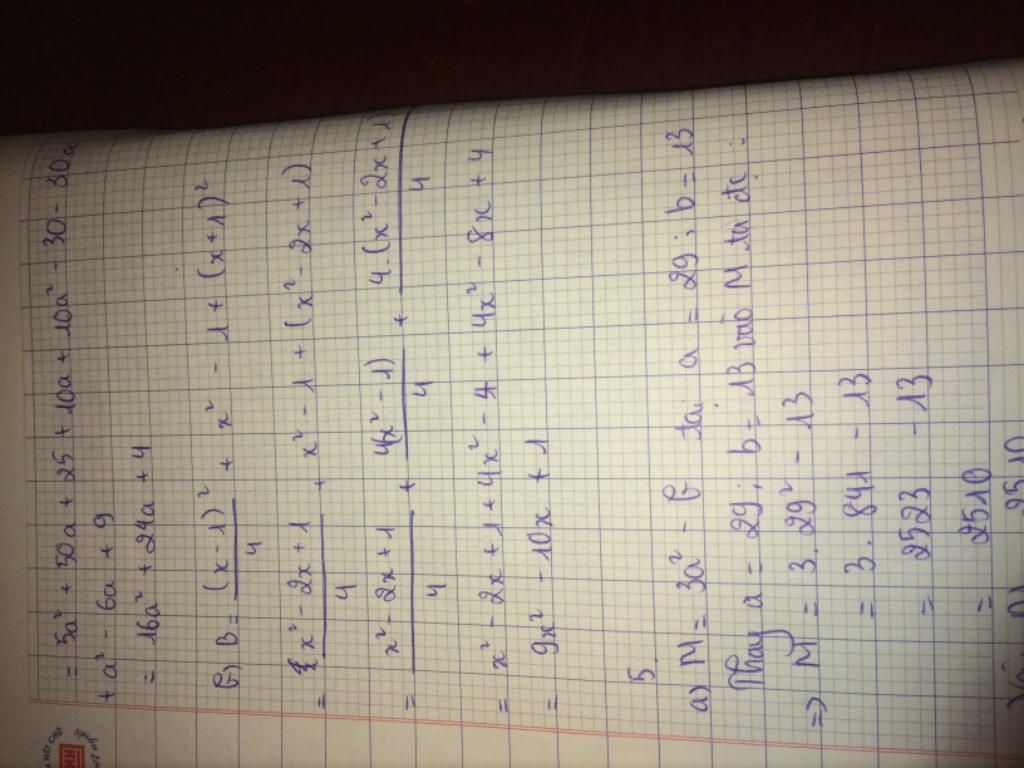 = 5a² + 50a + 25 + 10a + 10a² - 30 - 30a
+ a² - 6a + 9
= 16a² + 24a + 4
b) B = (x - 1)²/4 + x² - 1 + (x + 1)²
= x² - 2x + 1/4 + x² - 1 + (x² - 2x + 1)
= x² - 2x + 1/4 + 4(x² - 1)/4 + 4.(x² - 2x + 1)/4
= x² - 2x + 1 + 4x² - 4 + 4x² - 8x + 4
= 9x² - 10x + 1
5.
a) M = 3a² - b tại a = 29 ; b = 13
Thay a = 29 ; b = 13 vào M ta đc :
=> M = 3 . 29² - 13
= 3 . 841 - 13
= 2523 - 13
= 2510
2510